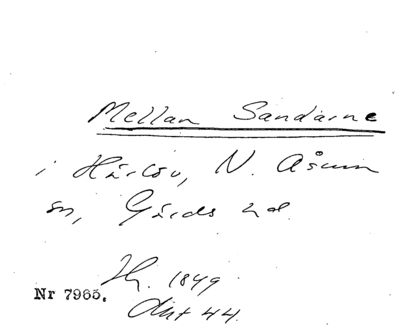 Mellan Sandarne
i Härlöv, N. Åsum
sn, Gärds hd.
Hy. 1849
Nr 7965.
Akt 44.